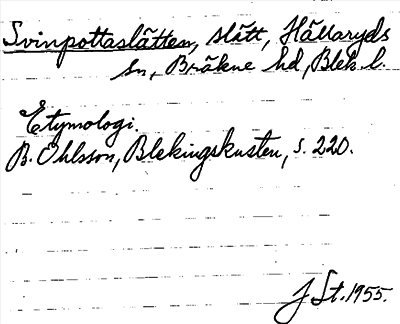 Svinpottaslätten, slätt, Hällaryds
sn, Bräkne hd, Blek. l.
Etymologi.
B. Ohlsson, Blekingskusten, s. 220.
J St. 1955.